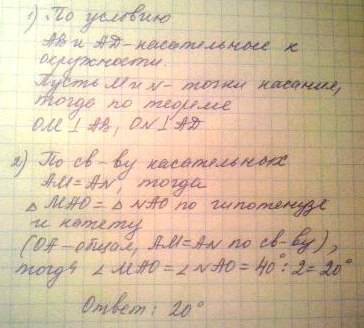 1) По условию
АВ и АД-касательные к
окружности.
Пусть М и N- точки касания,
тогда по теореме
ОМ ⊥ АВ, ON ⊥ АД
2) По св-ву касательных
АМ=АN, тогда
△ МАО = △ NАО по гипотенузе
и катету
(ОА-общая, АМ=АN по св-ву),
тогда ∠ МАО=∠ NАО = 40°:2=20°
Ответ: 20°